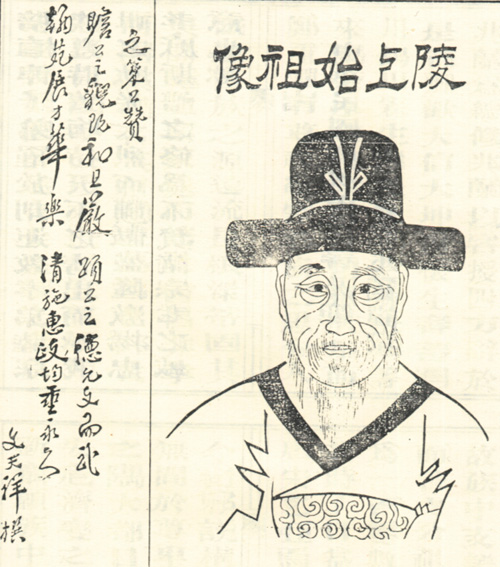 陵上始祖像
之策公贊
瞻公之貌既和且嚴 頌公之德允文而武
翰苑展才華樂 清施惠政均垂永久
文天祥 撰